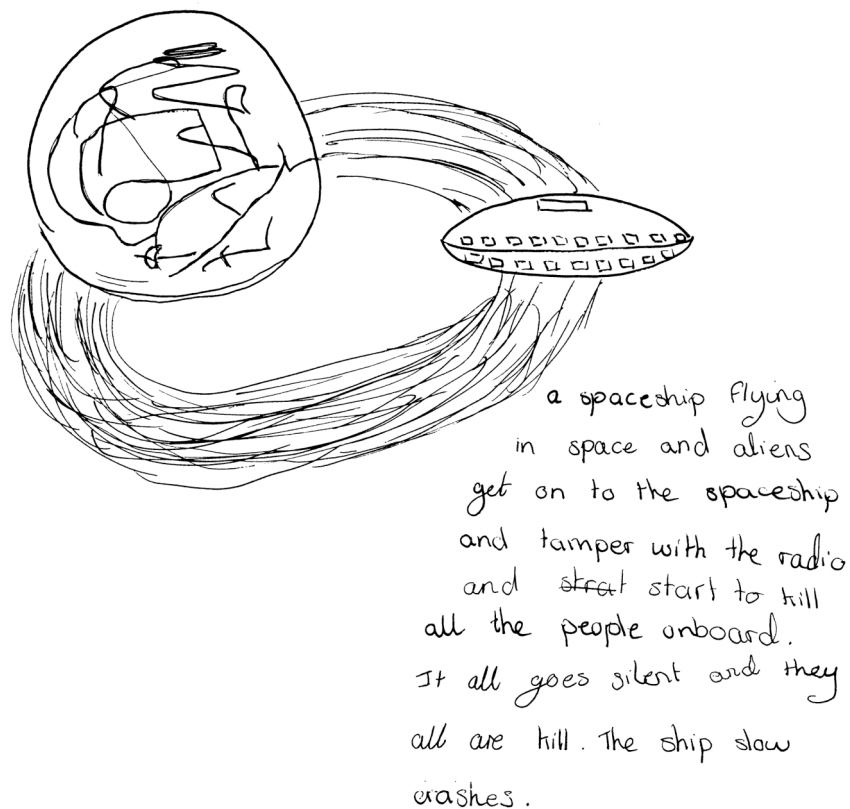 a spaceship flying
in space and aliens
get on to the spaceship
and tamper with the radio
and strat start to kill
all the people onboard.
It all goes silent and they
all are kill. The ship slow
crashes.